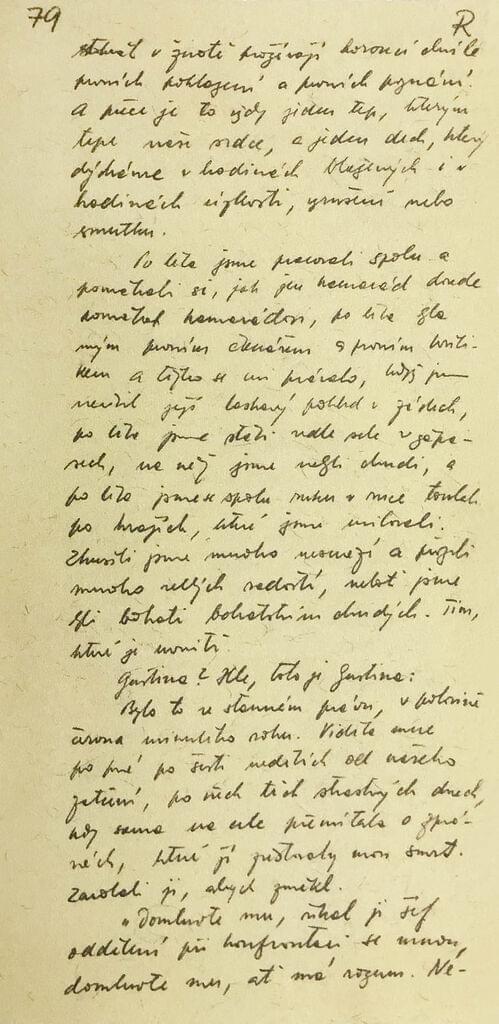 79
R
v životě prožívají horoucí chvíle
prvních pohlazení a prvních vyznání.
A přece je to vždy jeden tep, kterým
tepe naše srdce, a jeden dech, který
dýcháme v hodinách blažených i v
hodinách úzkosti, vzrušení nebo
smutku.
Po léta jsme pracovali spolu a
pomáhali si, jak jen kamarád dovede
pomáhat kamarádovi, po léta byla
mým prvním čtenářem a prvním kriti-
kem a těžko se mi psávalo, když jsem
necítil její laskavý pohled v zádech,
po léta jsme stáli vedle sebe v zápa-
sech, na něž jsme nebyli chudi, a
po léta jsme se spolu ruku v ruce toulali
po krajích, které jsme milovali.
Zkusili jsme mnoho nesnází a prožili
mnoho velkých radostí, neboť jsme
byli bohati bohatstvím chudých. Tím,
které je uvnitř.
Gustina? Hle, toto je Gustina:
Bylo to ve stanném právu, v polovině
června minulého roku. Viděla mne
po prvé po šesti nedělích od našeho
zatčení, po všech těch strastných dnech,
kdy sama na cele přemítala o zprá-
vách, které jí zvěstovaly mou smrt.
Zavolali ji, abych změkl.
"Domluvte mu, říkal jí šéf
oddělení při konfrontaci se mnou,
domluvte mu, ať má rozum. Ne-